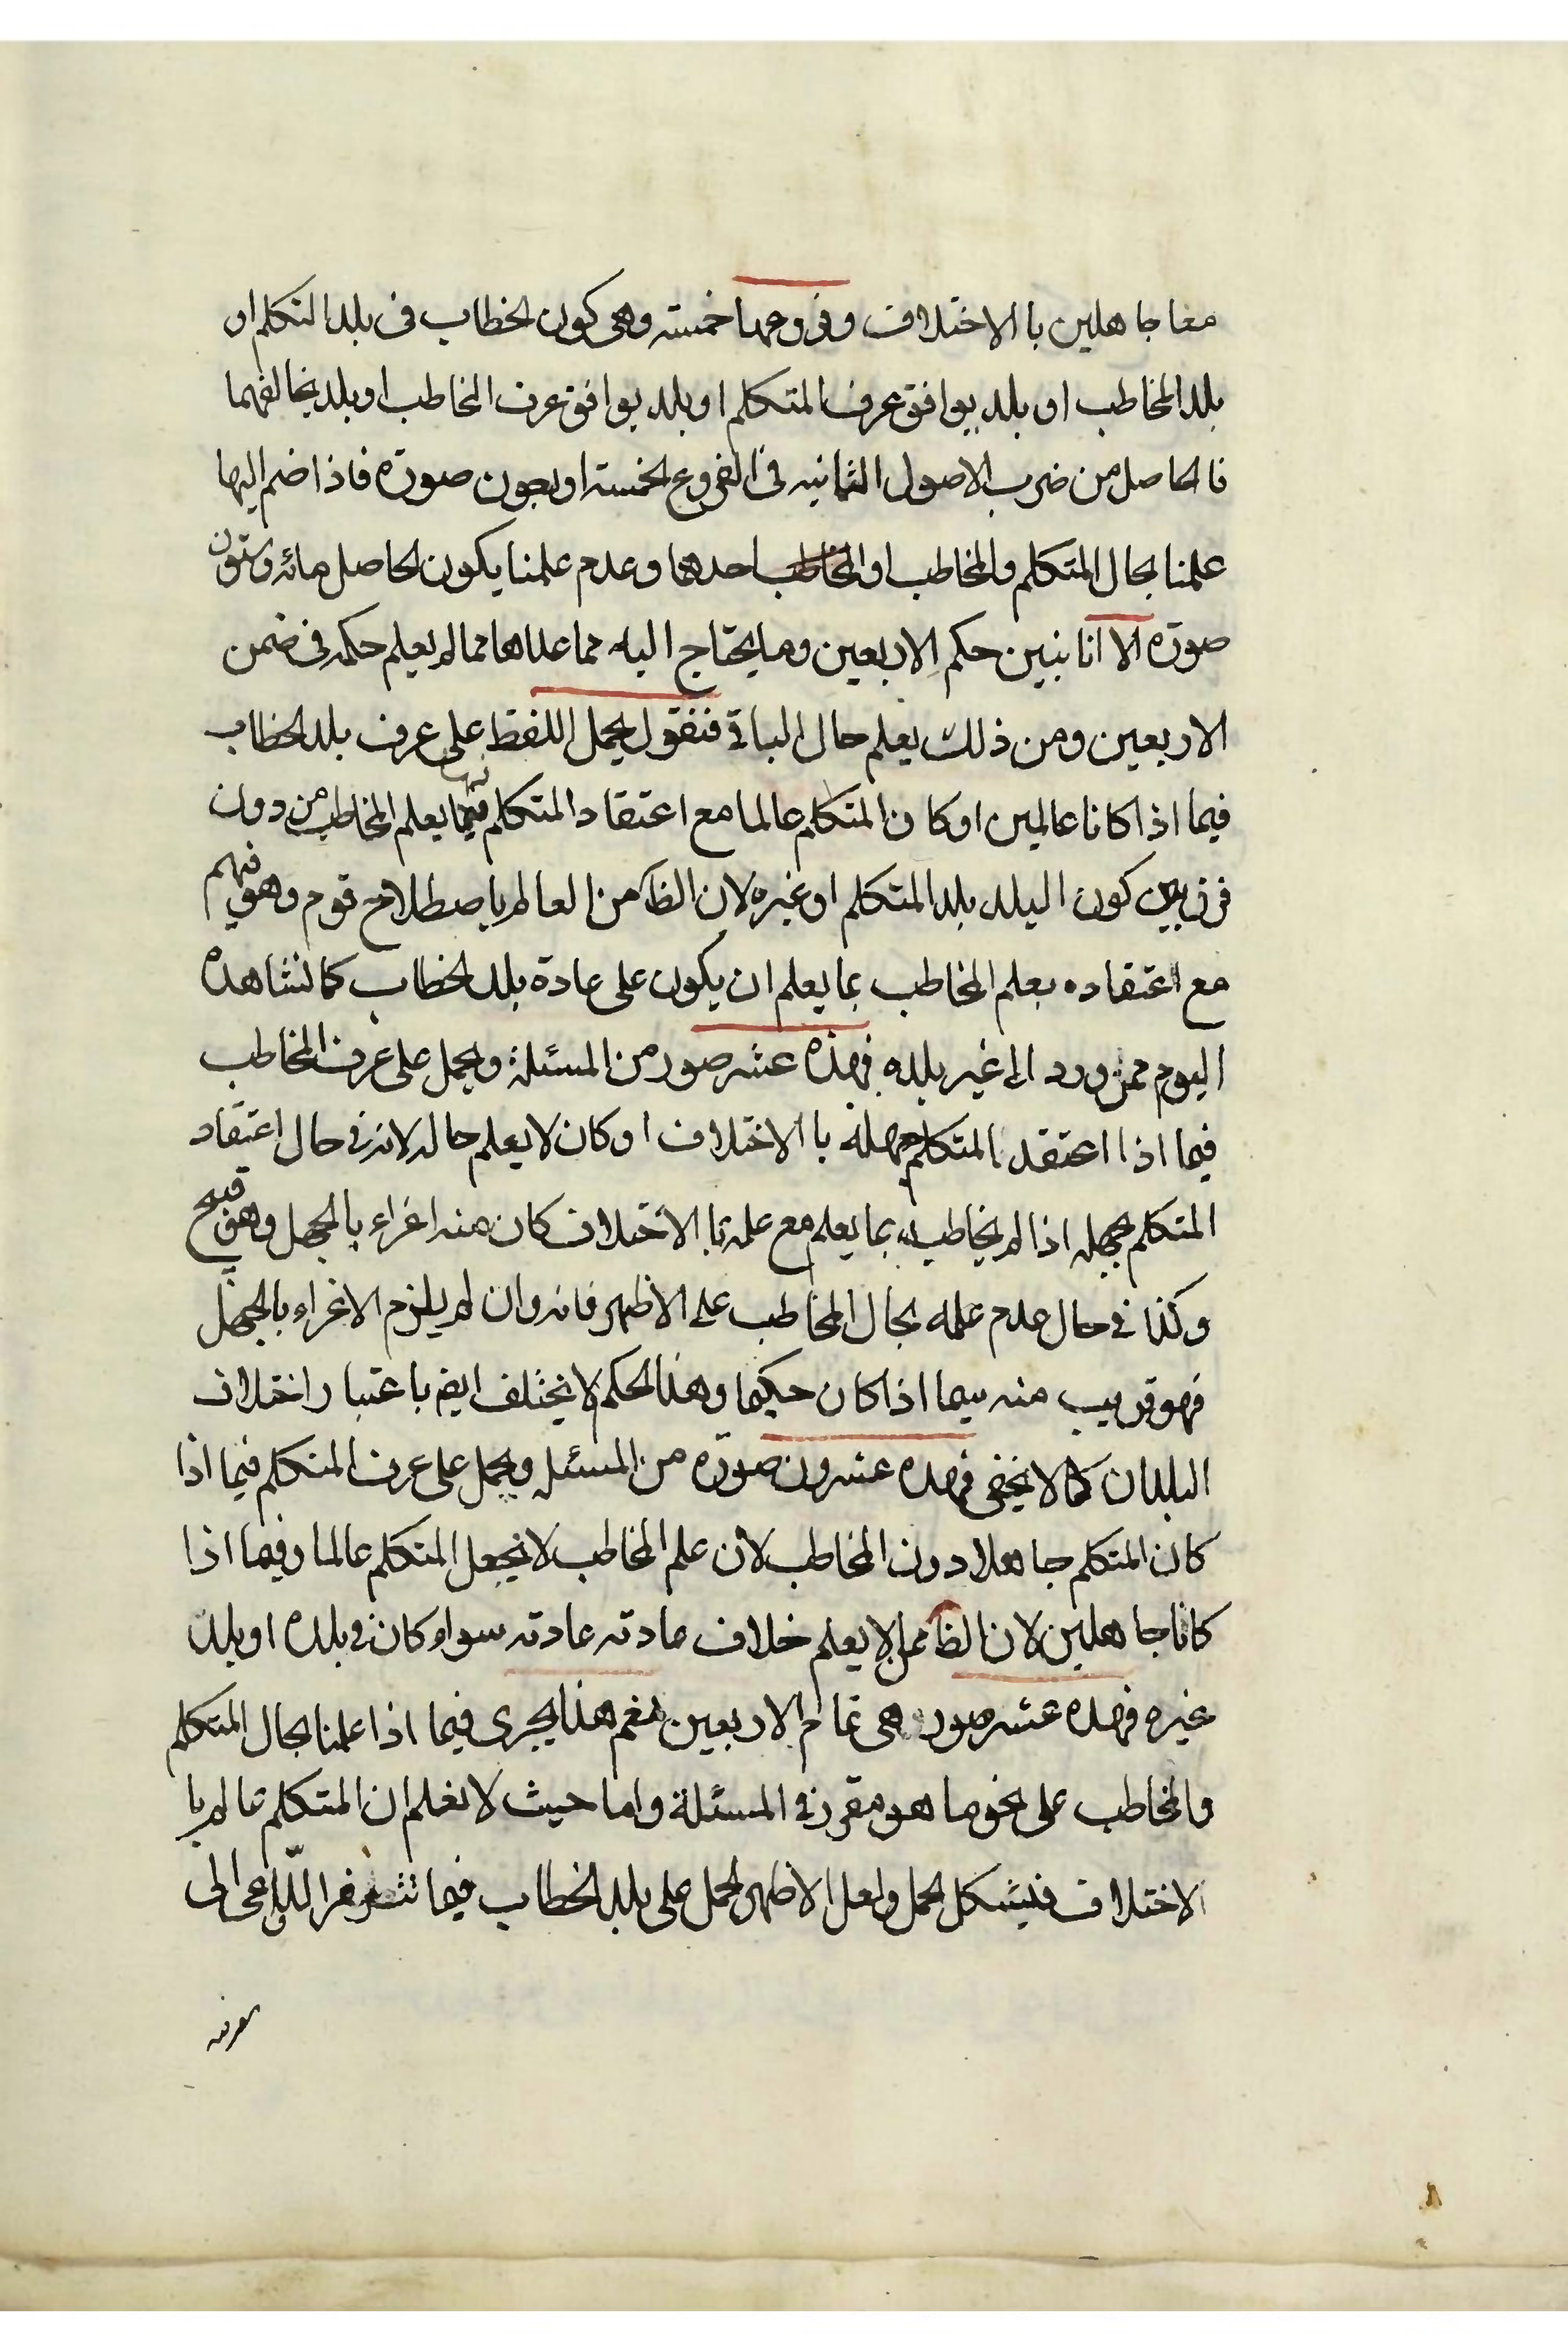 معا جاهلين با الاختلاف وفروعها خمسته وهى كون الخطاب فى بلد المتكلم او
بلد المخاطب او بلد يوافق عرف المتكلم او بلد يوافق عرف المخاطب او بلد يخالفهما
فالحاصل من ضرب الاصول الثمانيه فى الفروع الخمسته اربعون صورة فاذا ضم اليها
علمنا بحال المتكلم والمخاطب او احدهما وعدم علمنا يكون الحاصل مائه وستون
صورة الا انا نبين حكم الاربعين وما يحتاج اليه مما عداها مما لم يعلم حكمه فى ضمن
الاربعين ومن ذلك يعلم حال الباقى فنقول يحمل اللفظ على عرف بلد الخطاب
فيما اذا كانا عالمين او كان المتكلم عالما مع اعتقاد المتكلم يعلم المخاطب من دون
فرق بين كون البلد بلد المتكلم او غيره لان الظ من العالم باصطلاح قوم وهو فيهم
مع اعتقاده بعلم المخاطب بما يعلم ان يكون على عادة بلد الخطاب كما نشاهده
اليوم ممن ورد الى غير بلده فهذه عشر صور من المسئلة ويحمل على عرف المخاطب
فيما اذا اعتقد المتكلم جهله با الاختلاف او كان لا يعلم حاله لانه فى حال اعتقاد
المتكلم بجهله اذا لم يخاطبه بما يعلم مع علمه با الاختلاف كان منه اغراء بالجهل وهو قبيح
وكذا فى حال عدم علمه بحال المخاطب على الاظهر فانه وان لم يلزم الاغراء بالجهل
فهو قريب منه سيما اذا كان حكيما وهذا الحكم لا يختلف ايض باعتبار اختلاف
البلدان كما لا يخفى فهذه عشرون صورة من المسئله ويحمل على عرف المتكلم فيما اذا
كان المتكلم جاهلا دون المخاطب لان علم المخاطب لا يجعل المتكلم عالما وفيما اذا
كانا جاهلين لان الظ ممن لا يعلم خلاف عادته عادته سواء كان فى بلده او بلد
غيره فهذه عشر صور هى تمام الاربعين نعم هذا يجرى فيما اذا علمنا بحال المتكلم
والمخاطب على نحو ما هو مقرر فى المسئلة واما حيث لا نعلم ان المتكلم عالم با
الاختلاف فيشكل الحمل ولعل الاظهر الحمل على بلد الخطاب فيما تتوفر الدواعى الى
معرفته